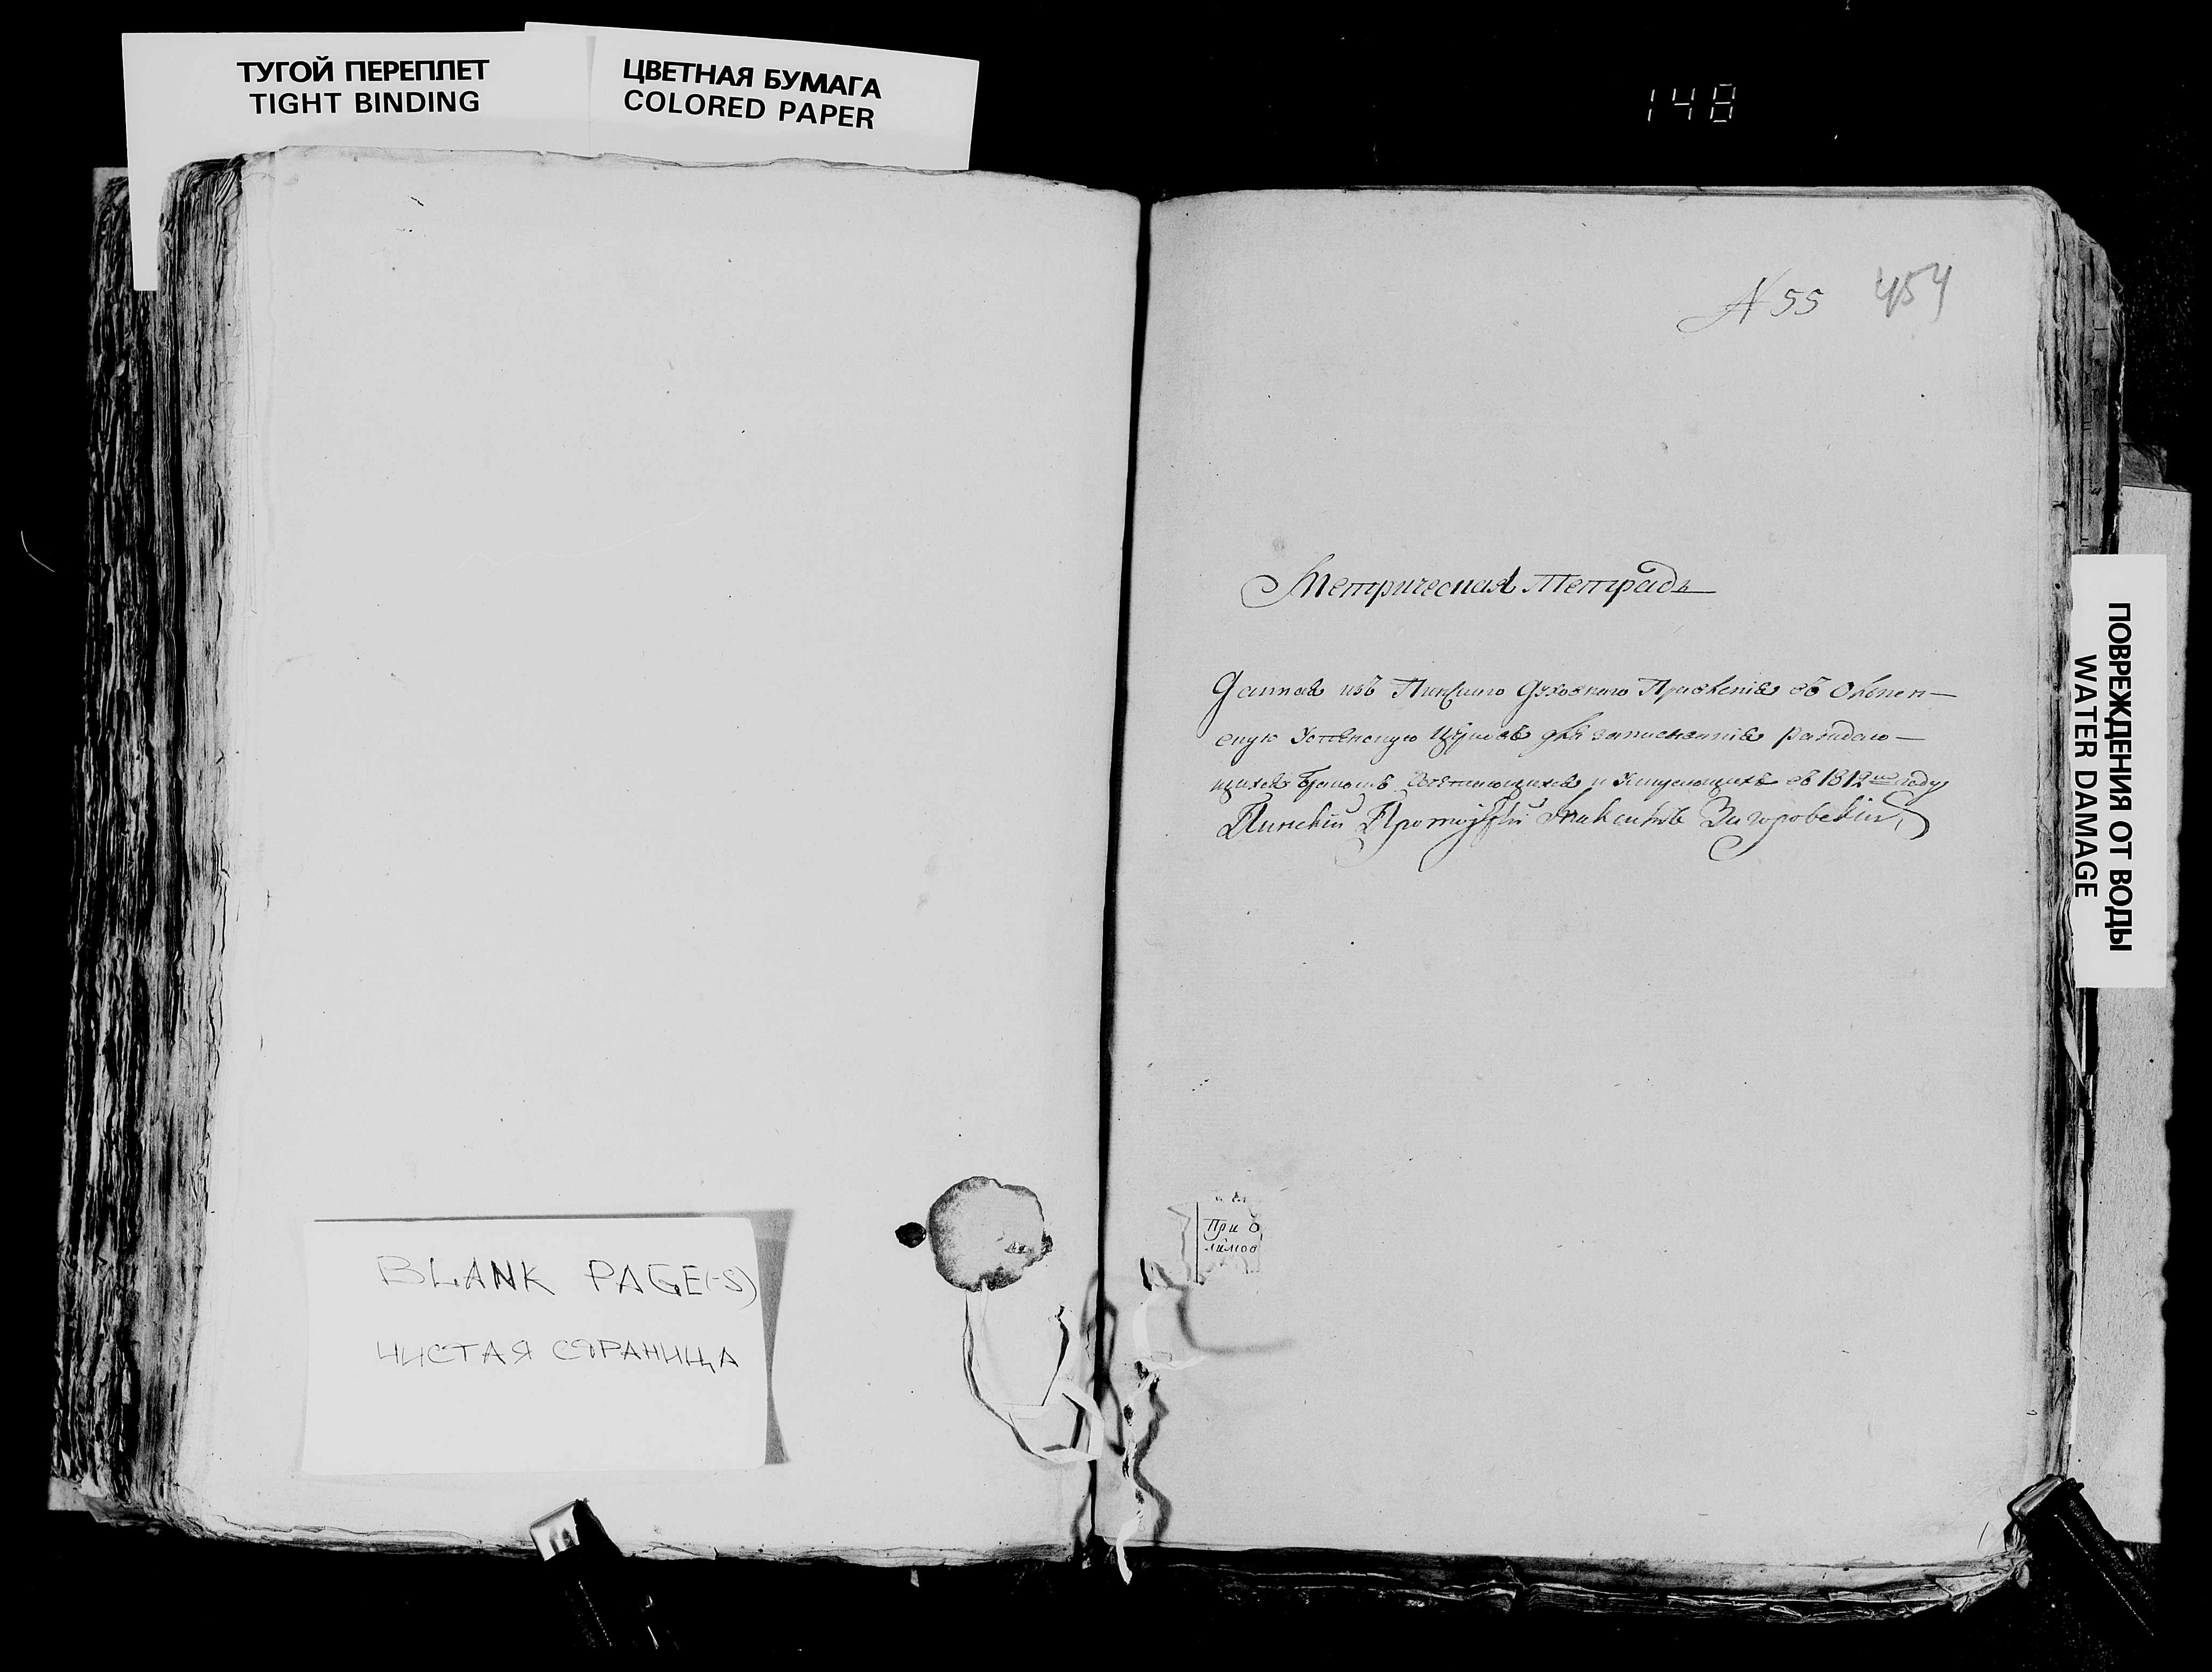 ТУГОЙ ПЕРЕПЛЕТ
TIGHT BINDING
ЦВЕТНАЯ БУМАГА
COLORED PAPER
148
N 55 454
Метрическая Тетрадь
Данная изъ Пинскаго Духовнаго Правленія въ
скую Успенскую Церковь для записыванія раждаю-
щихся Бракомъ Сочетающихся и Умирающихъ въ 1812м году
Пинскій Протоіерей Загоровскій
При о
лимоо
BLANK PAGE(-S)
ЧИСТАЯ СТРАНИЦА
ПОВРЕЖДЕНИЯ ОТ ВОДЫ
WATER DAMAGE